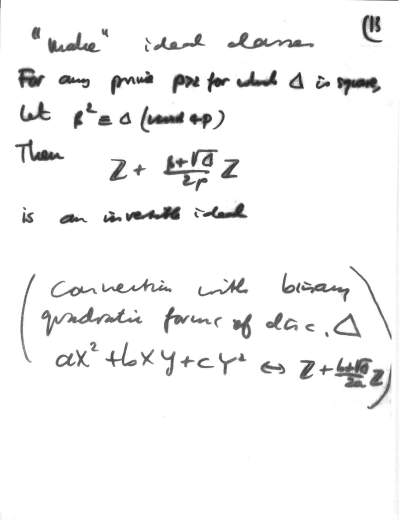 (13
"make" ideal classes
For any prime p≠2 for which Δ is square,
let β² ≡ Δ (mod 4p)
Then
ℤ + (β+√Δ)/2p ℤ
is an invertible ideal
(Connection with binary
quadratic forms of disc. Δ
aX² + bXY + cY² ↔ ℤ + (b+√Δ)/2a ℤ)